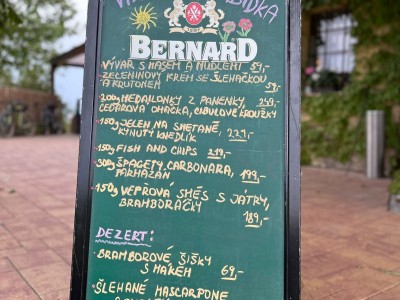 BERNARD
VÝVAR S MASEM A NUDLEMI 59,-
ZELENINOVÝ KRÉM SE ŠLEHAČKOU
A KRUTONEM 59,-
200g MEDAILONKY Z PANENKY, 259,-
CIBULOVÉ KROUŽKY
150g JELEN NA SMETANĚ,
KYNUTÝ KNEDLÍK 221,-
150g FISH AND CHIPS 219,-
300g ŠPAGETY, CARBONARA, 199,-
PARMAZÁN
150g VEPŘOVÁ SMĚS S JÁTRY,
BRAMBORÁČKY
189,-
DEZERT:
BRAMBOROVÉ ŠIŠKY
S MÁKEM 69,-
ŠLEHANÉ MASCARPONE